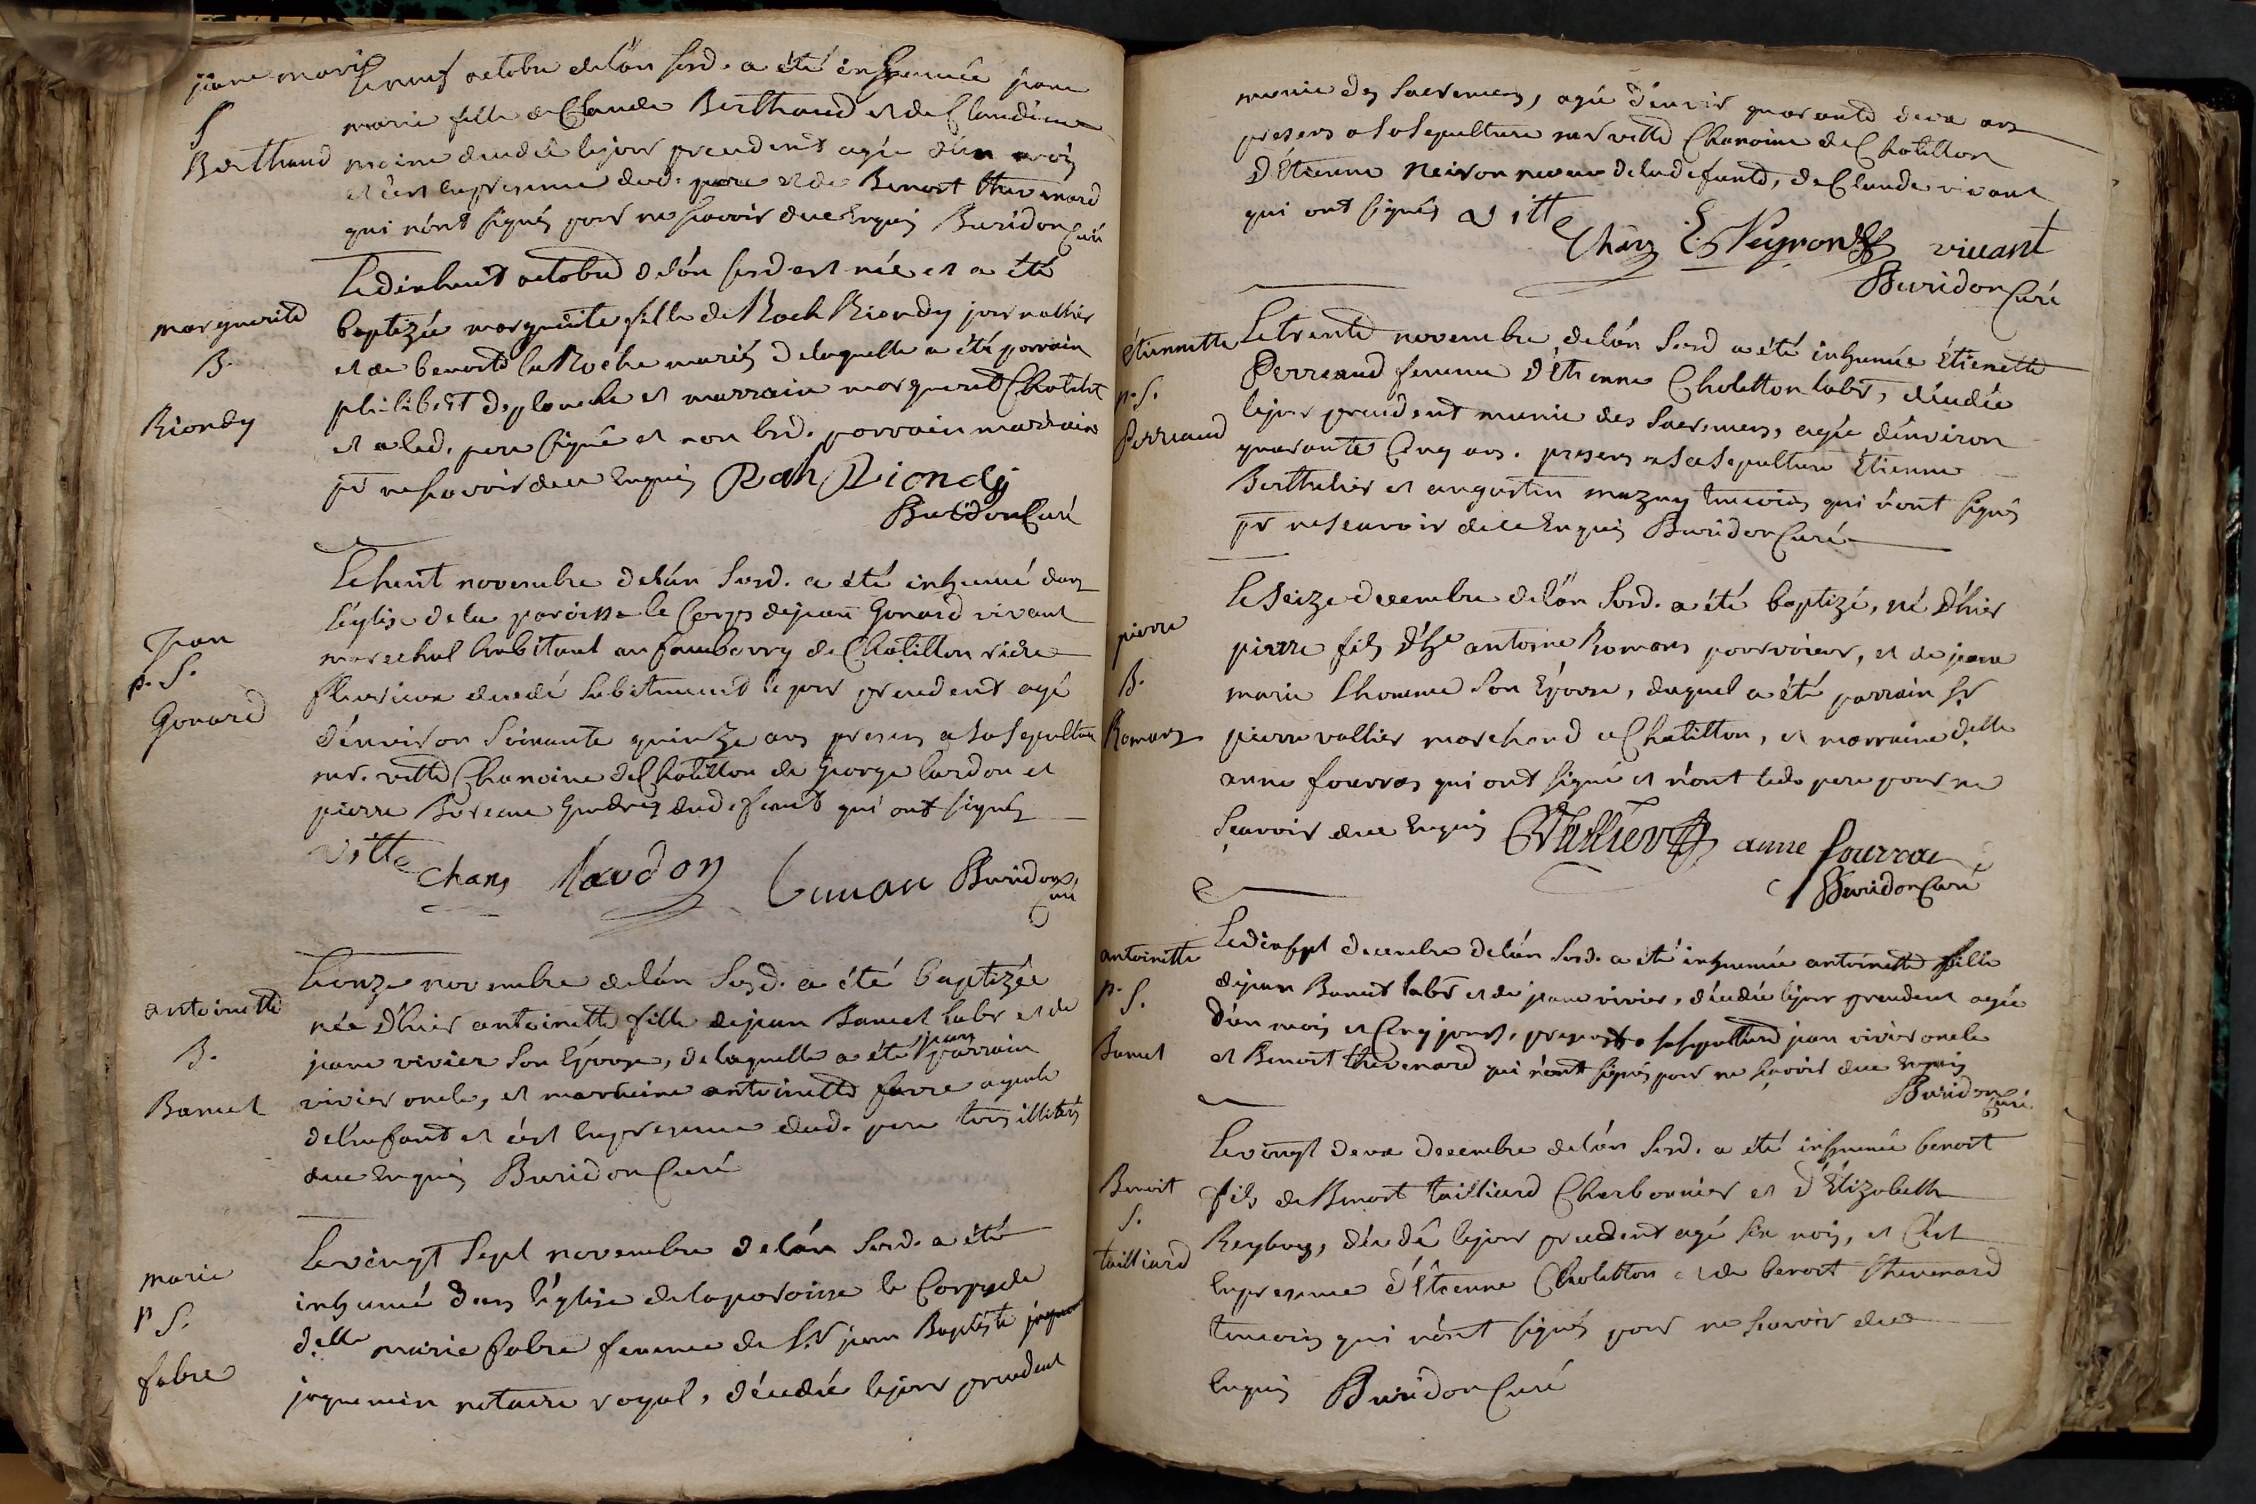 jane marie
S
Berthaud
Le neuf octobre de l'án susd. a été inhumée jane
marie fille de Claude Berthaud et de Claudine
moine decedée le jour precedent agée d'un mois
et c'est en presence dud. pere et de Benoit thevenard
qui n'ont signés pour ne scavoir de ce Enquis Buridon Curé
marguerite
B.
Riondy
Le dixhuit octobre de l'án susd est née et a été
baptizée marguerite fille de Roch Riondy journallier
et de benoite la Roche mariés de laquelle a été parrain
philibert desplanche et marraine marguerite Chatelet
et a led. pere signé et non lesd. parrain marraine
pr ne scavoir de ce Enquis Roch Riondy
Buridon Curé
Jean
p. S.
Gonard
Le huit novembre de l'án susd. a été inhumé dans
l'église de la paroisse le Corps de jean Gonard vivant
marechal habitant au fauxbourg de Chatillon riere
fleurieux decedé subitement le jour precedent agé
d'environ soixante quinze ans presens a sa sepulture
mr. vitte Chanoine de Chatillon de george lardon et
pierre Gendres dud. defunt qui ont signés
vitte Chane lardon Buridon
Curé
antoinette
B.
Bamet
Le onze novembre de l'án susd. a été baptizée
née d'hier antoinette fille de jean Bamet labr et de
jane vivier son Epouse, de laquelle a été parrain jean
vivier oncle, et marraine antoinette favre ayeule
de l'enfant et c'est En presence dud. pere tous illiterés
de ce Enquis Buridon Curé
marie
p S.
fabre
Le vingt sept novembre de l'án susd. a été
inhumé dans l'église de la paroisse le Corps de
delle marie fabre femme de Sr jean Baptiste
jaquemin notaire royal, décedée le jour precedent
munie des sacremens, agée d'environ quarante deux ans
presens a sa sepulture mr vitte Chanoine de Chatillon
d'Étienne Neiron neveu de lad defunte, de Claude vivant
qui ont signés vitte
Chane E. Neyron vivant
Buridon Curé
étiennette
p. S.
Perreaud
Le trente novembre de l'án susd a été inhumée Étienette
Perreaud femme d'Étienne Choletton labr, décedée
le jour precedent munie des sacremens, agée d'environ
quarante Cinq ans. presens a sa sepulture Étienne
Berthelier et augustin mazuy temoins qui n'ont signés
pr ne scavoir de ce Enquis Buridon Curé
pierre
B.
Romans
Le seize decembre de l'án susd. a été baptizé, né d'hier
pierre fils d'he antoine Romans pourvoieur, et de jeane
marie Lhomme son Epouse, duquel a été parrain Sr
pierre vallier marchand a Chatillon, et marraine delle
anne fourras qui ont signé et n'ont led. pere pour ne
scavoir de ce Enquis Vallier anne fourras
Buridon Curé
antoinette
p. S.
Bamet
Le dixsept decembre de l'án susd. a été inhumée antoinette fille
de jean Bamet labr et de jane vivier, décedée le jour precedent agée
d'un mois et Cinq jours, presens a sa sepulture jean vivier oncle
et Benoit thevenard qui n'ont signés pour ne scavoir de ce Enquis
Buridon
Curé.
Benoit
S.
tailliard
Le vingt deux decembre de l'án susd. a été inhumé benoit
fils de Benoit tailliard Charbonnier et d'Élizabeth
Reyboz, décedé le jour precedent agé six mois, et C'est
En presence d'Étienne Choletton et de benoit thevenard
temoins qui n'ont signés pour ne scavoir de ce
Enquis Buridon Curé